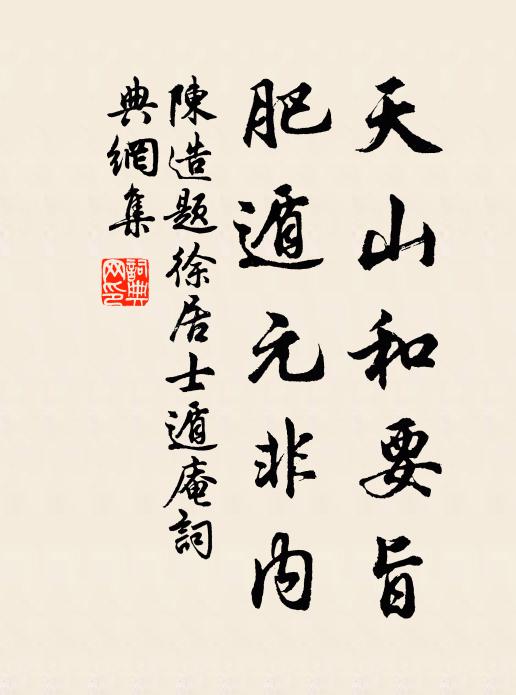 天山和要旨
肥遁元非内
陳造題徐居士遁庵詞
典網集
詞典網印